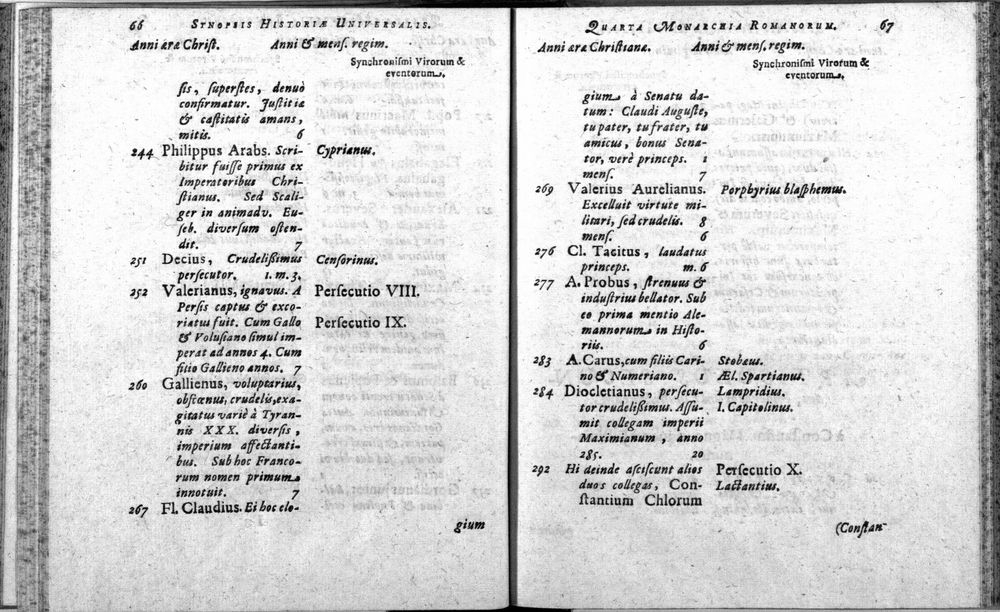 66 SYNOPSIS HISTORIÆ UNIVERSALIS.
Anni æræ Christ. Anni & mens. regim.
Synchronismi Virorum &
eventorum.
sis, superstes, denuò
confirmatur. Justitiæ
& castitatis amans,
mitis. 6
244 Philippus Arabs. Scri- Cyprianus.
bitur fuisse primus ex
Imperatoribus Chri-
stianus. Sed Scali-
ger in animadv. Eu-
seb. diversum osten-
dit. 7
251 Decius, Crudelissimus Censorinus.
persecutor. 1. m. 3.
252 Valerianus, ignavus. A Persecutio VIII.
Persis captus & exco-
riatus fuit. Cum Gallo Persecutio IX.
& Volusiano simul im-
perat ad annos 4. Cum
filio Gallieno annos. 7
260 Gallienus, voluptarius,
obscœnus, crudelis, exa-
gitatus variè à Tyran-
nis XXX. diversis,
imperium affectanti-
bus. Sub hoc Franco-
rum nomen primum
innotuit. 7
267 Fl. Claudius. Ei hoc elo-
gium
QUARTA MONARCHIA ROMANORUM. 67
Anni æræ Christianæ. Anni & mens. regim.
Synchronismi Virorum &
eventorum.
gium à Senatu da-
tum: Claudi Auguste,
tu pater, tu frater, tu
amicus, bonus Sena-
tor, verè princeps. 1
mens. 7
269 Valerius Aurelianus. Porphyrius blasphemus.
Excelluit virtute mi-
litari, sed crudelis. 8
mens. 6
276 Cl. Tacitus, laudatus
princeps. m. 6
277 A. Probus, strenuus &
industrius bellator. Sub
eo prima mentio Ale-
mannorum in Histo-
riis. 6
283 A. Carus, cum filiis Cari- Stobæus.
no & Numeriano. 1 Æl. Spartianus.
284 Diocletianus, persecu- Lampridius.
tor crudelissimus. Assu- I. Capitolinus.
mit collegam imperii
Maximianum, anno
285. 20
292 Hi deinde asciscunt alios Persecutio X.
duos collegas, Con- Lactantius.
stantium Chlorum
(Constan